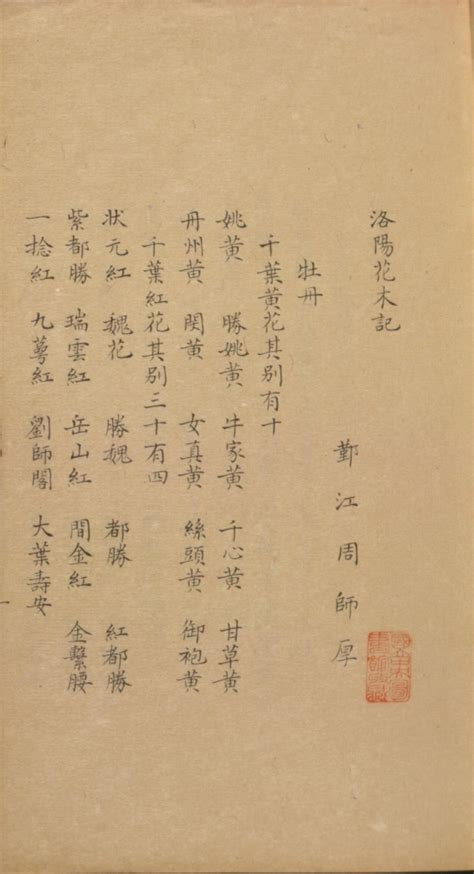 洛陽花木記
鄞江周師厚
牡丹
千葉黃花其別有十
姚黃 勝姚黃 牛家黃 千心黃 甘草黃
丹州黃 閔黃 女真黃 絲頭黃 御袍黃
千葉紅花其別三十有四
狀元紅 魏花 勝魏 都勝 紅都勝
紫都勝 瑞雲紅 岳山紅 間金紅 金繫腰
一捻紅 九萼紅 劉師閣 大葉壽安